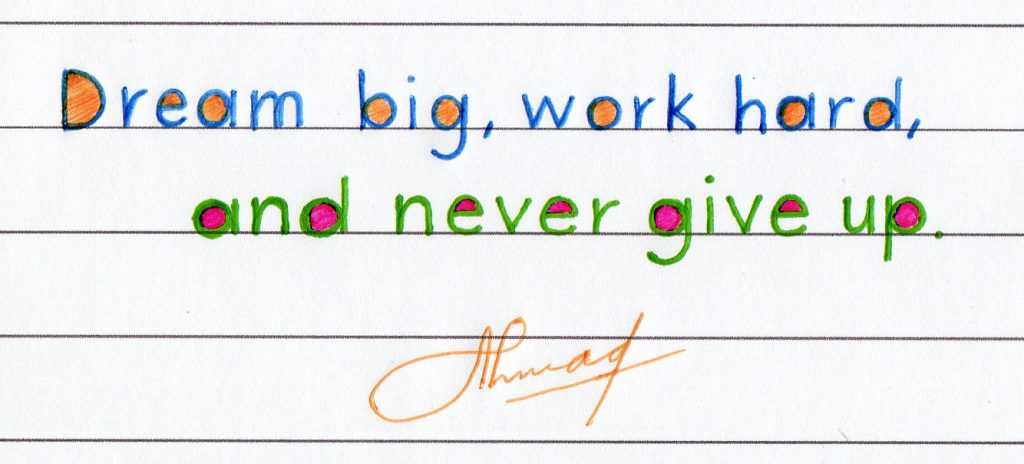 Dream big, work hard,
and never give up.
Ahmad